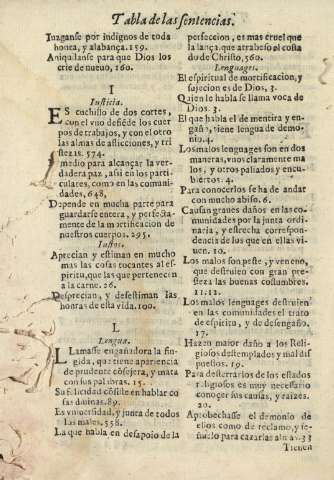 Tabla de las sentencias.
Iuzganse por indignos de toda
honra, y alabança. 159.
Aniquilanse para que Dios los
crie de nueuo, 160.
I
Iusticia.
ES cuchillo de dos cortes,
con el vno defiēde los cuer
pos de trabajos, y con el otro
las almas de afficciones, y tri
stezas. 574.
medio para alcançar la ver-
dadera paz, assi en los parti-
culares, como en las comuni-
dades, 648,
Depende en mucha parte para
guardarse entera, y perfecta-
mente de la mortificacion de
nuestros cuerpos. 295.
Iustos.
Aprecian y estiman en mucho
mas las cosas tocantes al es-
piritu, que las que pertenecen
a la carne. 26.
Desprecian, y desestiman las
honras de esta vida. 100.
L
Lengua.
LLamasse engañadora la fin-
gida, que tiene apariencia
de prudente cōsejera, y mata
con sus palabras. 15.
Su felicidad cōsiste en hablar co
sas diuinas. 89.
Es vniuersidad, y junta de todos
los males. 558.
La que habla en desapoio de la
perfeccion, es mas cruel que
la lança, que atrabesò el costa
do de Christo, 560.
Lenguages.
El espiritual de mortificacion, y
sujecion es de Dios, 3.
Quien le habla se llama voca de
Dios. 3.
El que habla el de mentira y en-
gaño, tiene lengua de demo-
nio. 4.
Los malos lenguages son en dos
maneras, vnos claramente ma
los, y otros paliados y encu-
biertos. 4.
Para conocerlos se ha de andar
con mucho abiso. 6.
Causan grandes daños en las co-
munidades por la junta ordi-
naria, y estrecha correspon-
dencia de los que en ellas vi-
uen. 10.
Los malos son peste, y veneno,
que destruien con gran pre-
steza las buenas costumbres.
11. 12.
Los malos lenguages destruien
en las comunidades el trato
de espiritu, y de desengaño.
17.
Hazen maior daño a los Reli-
giosos destemplados y mal dis
puestos. 19.
Para desterrarlos de los estados
religiosos es muy necesario
conocer sus causas, y raizes.
20.
Aprobechasse el demonio de
ellos como de reclamo, y se-
ñuelo para cazar las almas. 33
Tienen